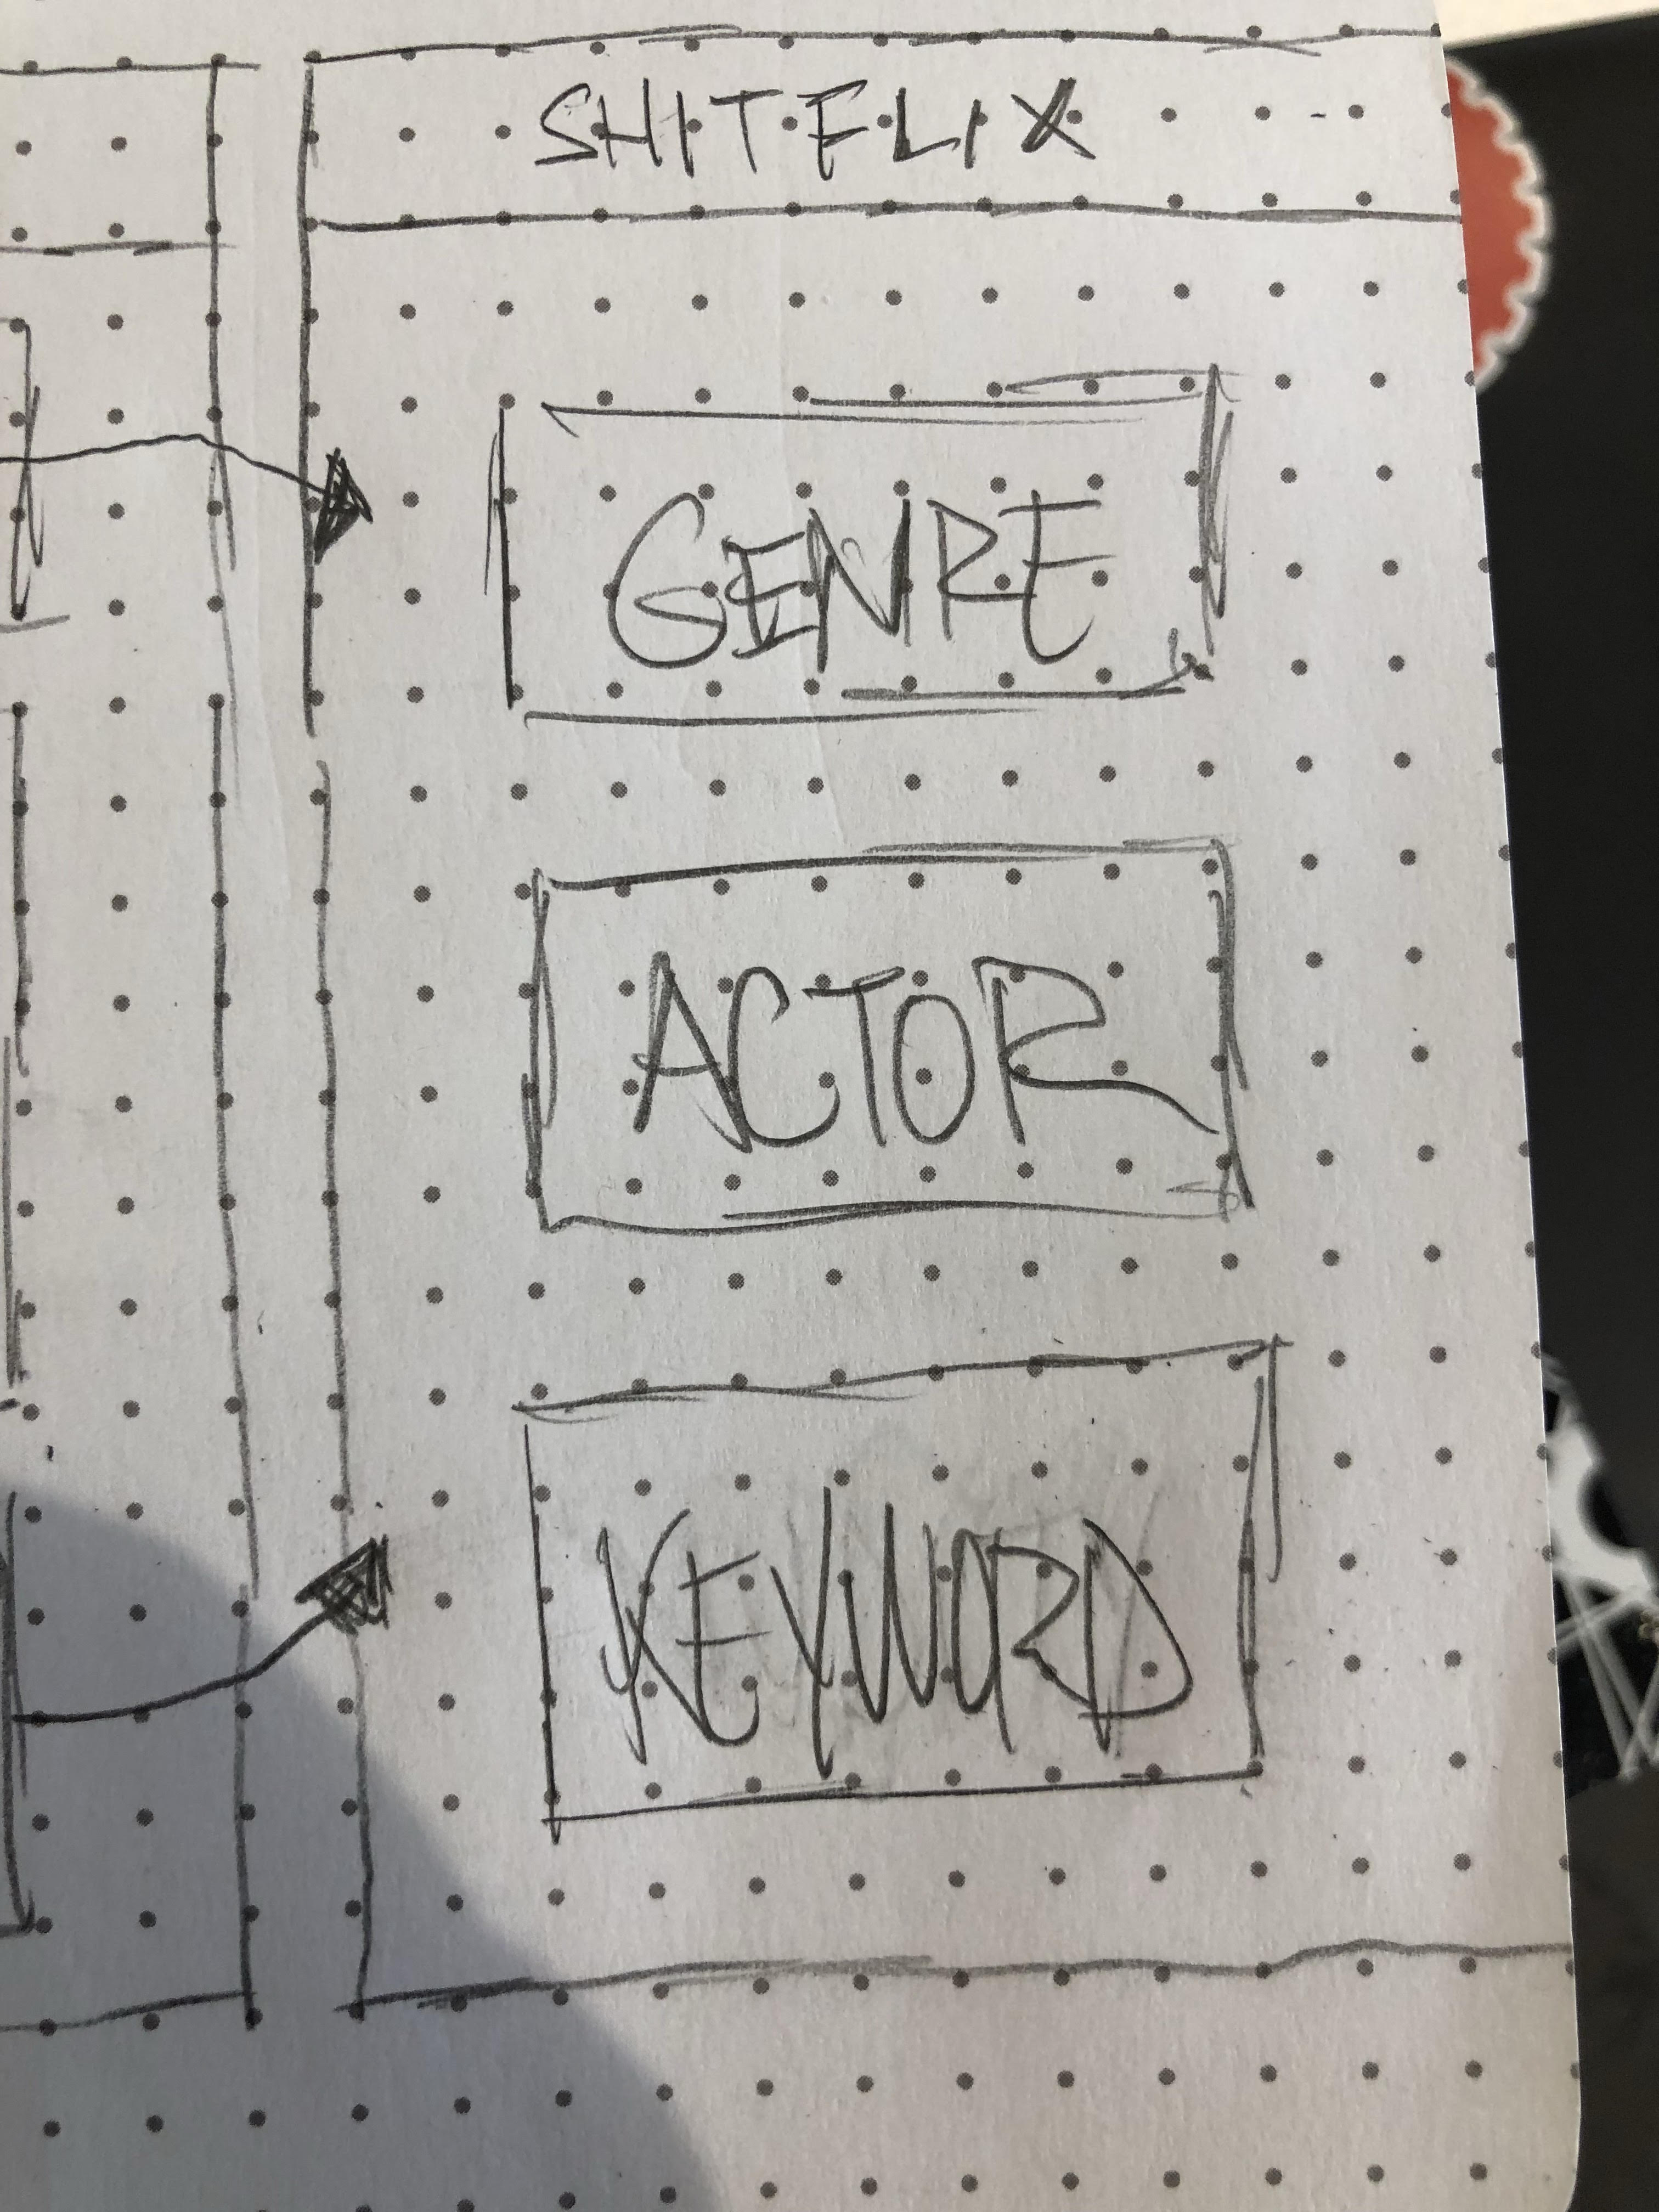 SHITFLIX
GENRE
ACTOR
KEYWORD